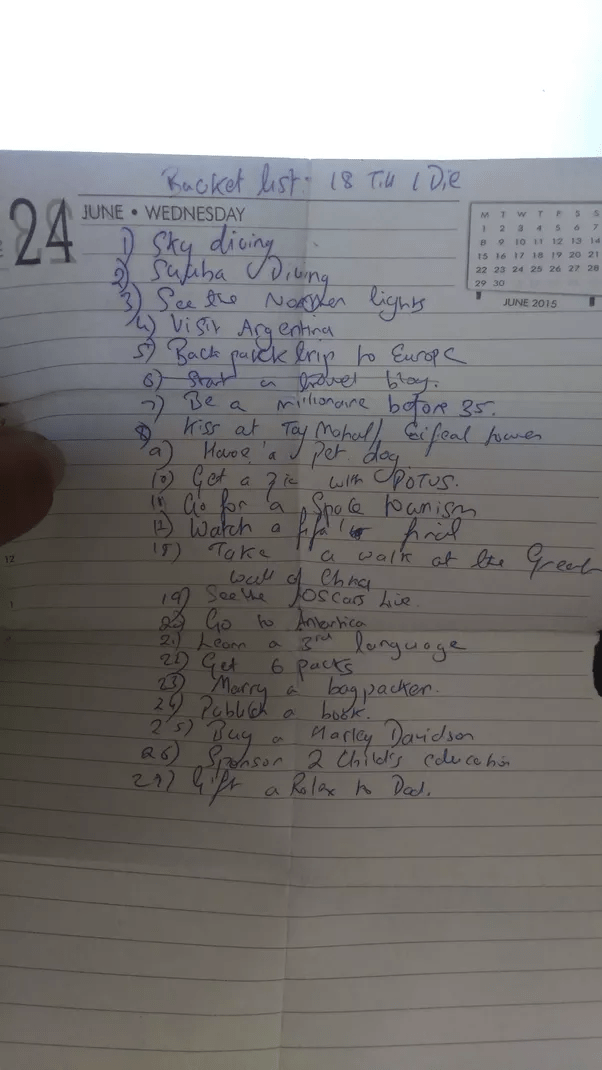 Bucket list: 18 Till I Die
24 JUNE • WEDNESDAY
M T W T F S S
1 2 3 4 5 6 7
8 9 10 11 12 13 14
15 16 17 18 19 20 21
22 23 24 25 26 27 28
29 30
JUNE 2015
1) Sky diving
2) Diving
3) See the Northern lights
4) Visit Argentina
5) Back pack trip to Europe
6) Start a travel blog.
7) Be a millionaire before 35.
8) Kiss at Taj Mahal/ Eifeal tower
9) Have a pet dog
10) Get a pic with POTUS.
11) Go for a Space tourism
12) Watch a fifa final
18) Take a walk at the Great
wall of China
19) See the OSCars Live.
20) Go to Antartica
21) Learn a 3rd language
22) Get 6 packs
23) Marry a bagpacker.
24) Publish a book.
25) Buy a Harley Davidson
26) Sponsor 2 Child's education
27) Gift a Rolax to Dad.
12
1